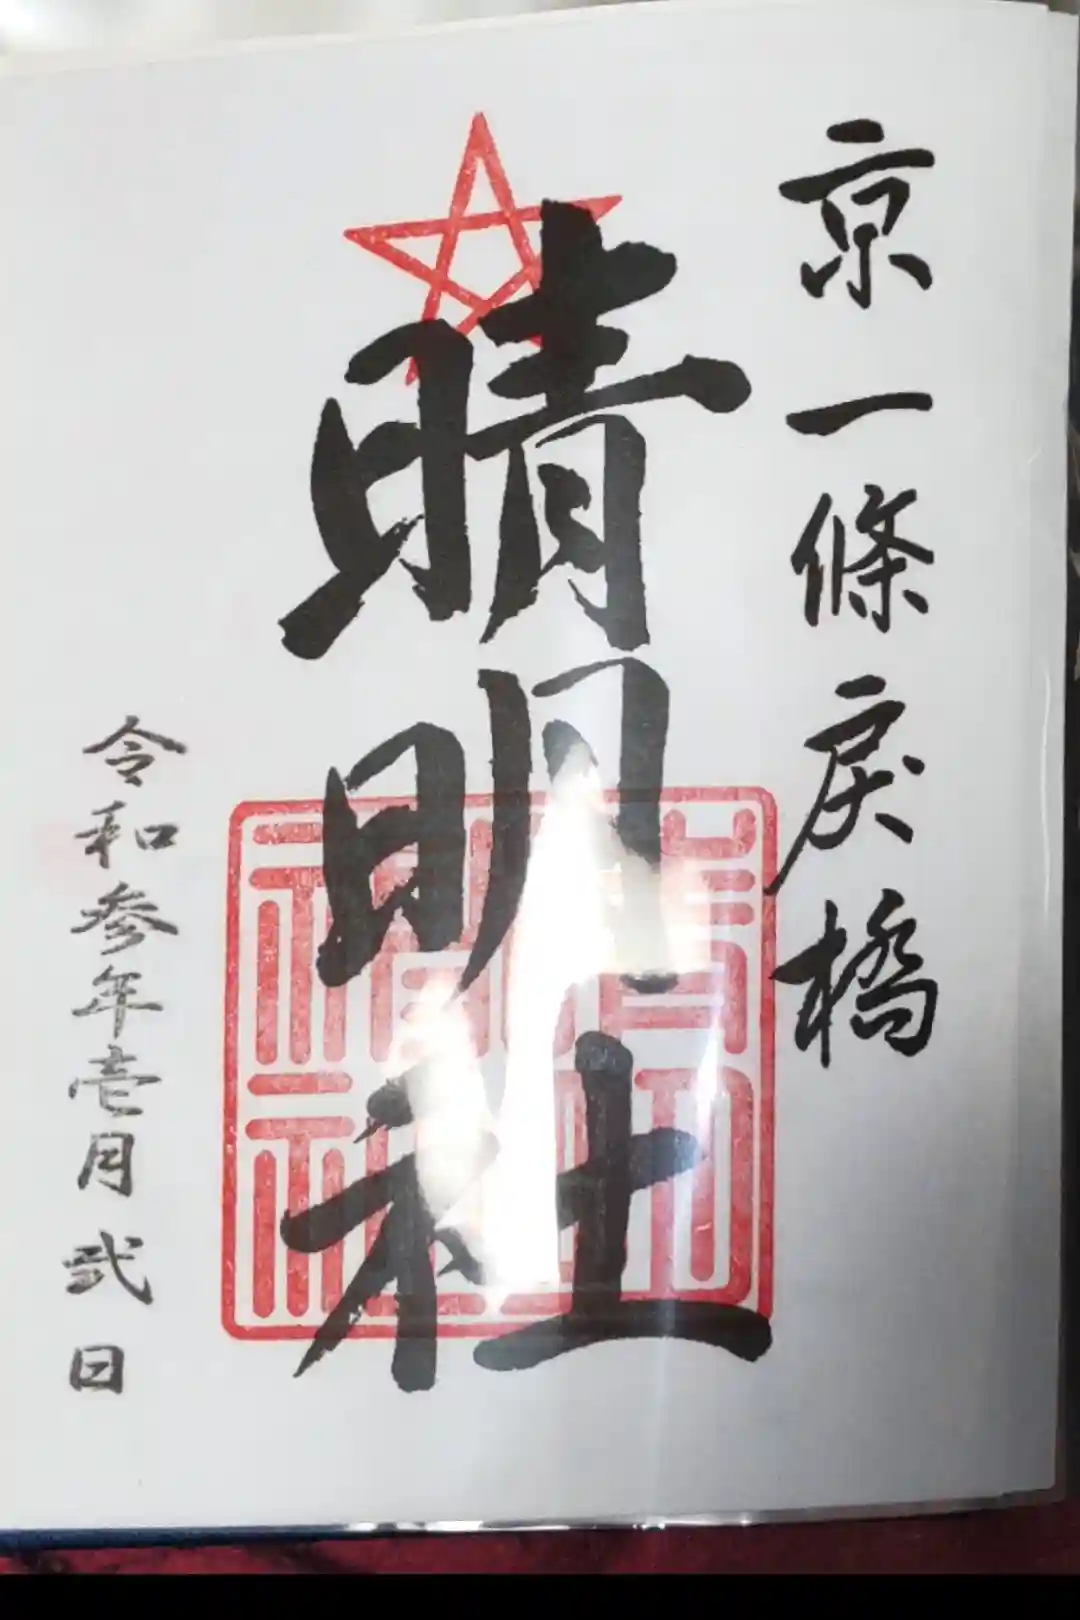 京一條戻橋
晴明社
令和参年壱月弐日